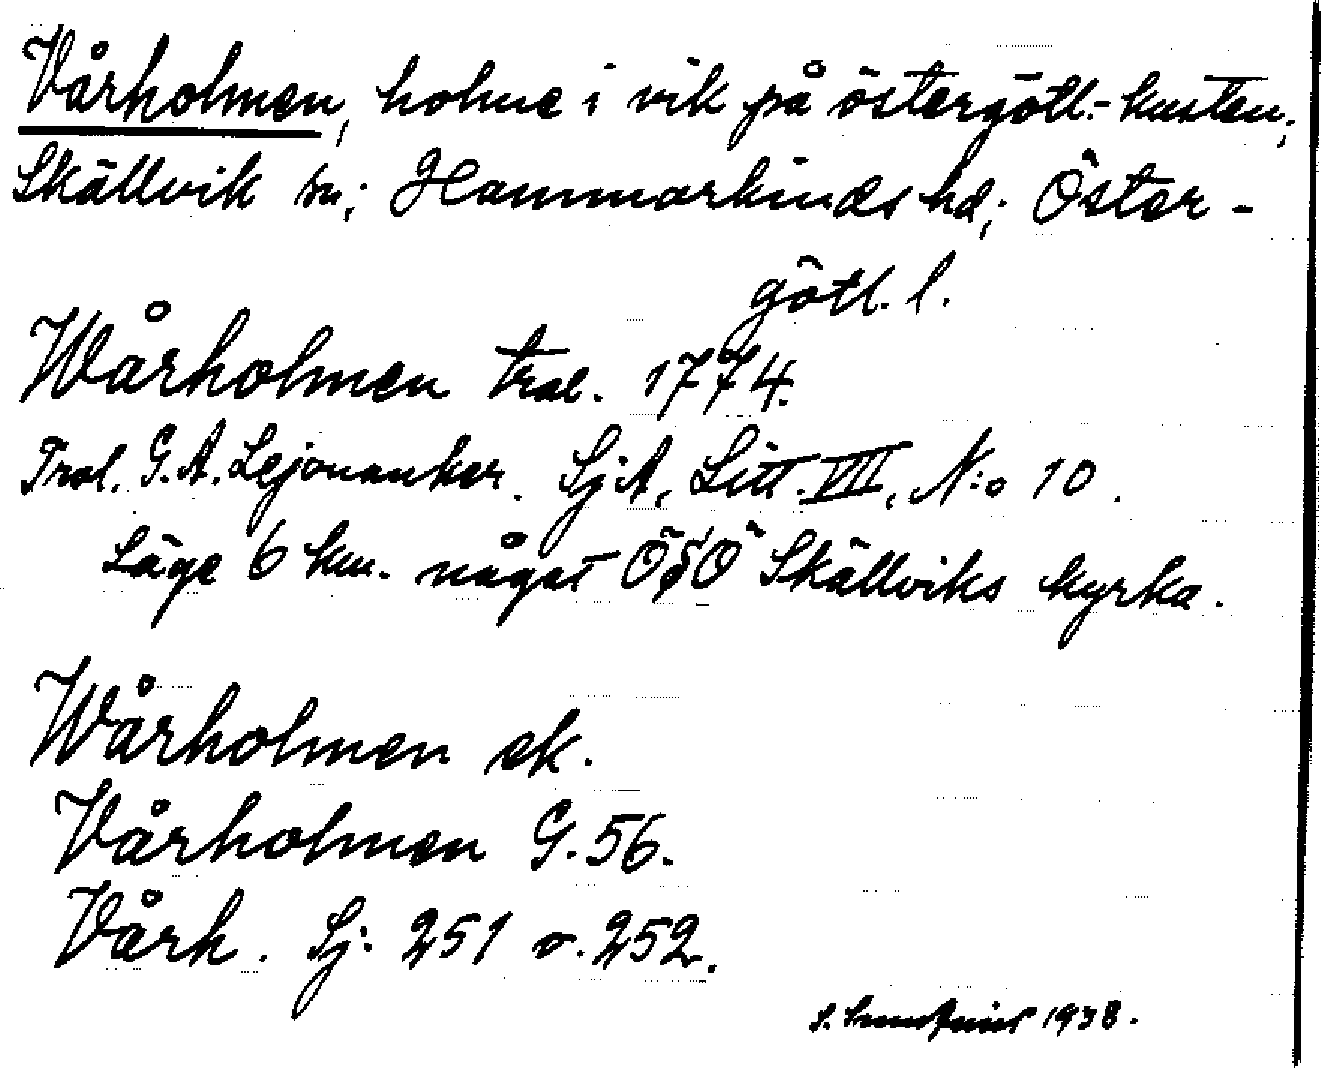 Vårholmen, holme i vik på östergötl.-kusten;
Skällvik sn; Hammarkinds hd; Öster-
götl. l.
Wårholmen tral. 1774.
Tral. G.A. Lejonanker. SjA, Litt. VII, N:o 10.
Läge 6 km. något ÖSÖ Skällviks kyrka.
Wårholmen ek.
Vårholmen G. 56.
Vårh. Sj. 251 o. 252.
S. 1938.